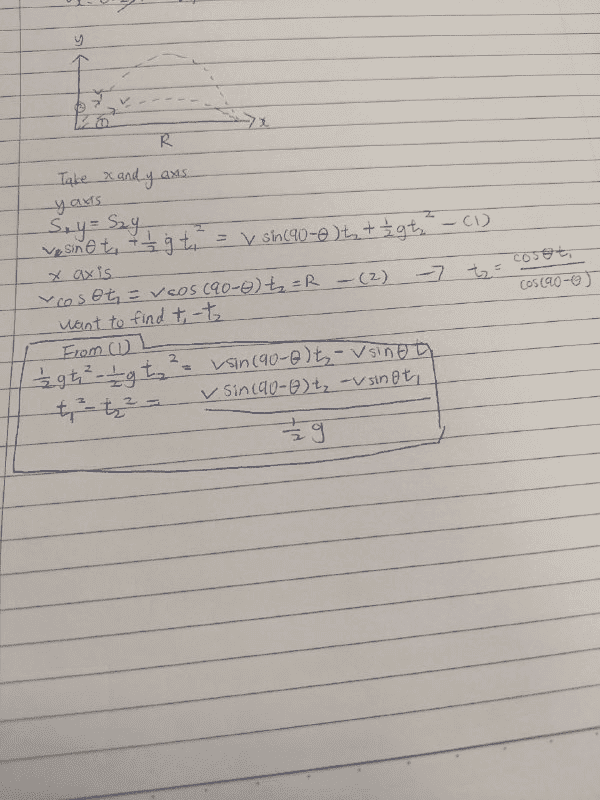 y
v
v
θ
x
R
Take x and y axis
y axis
S₁y = S₂y
v sinθ t₁ + ½ g t₁² = v sin(90-θ)t₂ + ½gt₂² - (1)
x axis
v cos θt₁ = v cos (90-θ) t₂ = R - (2) → t₂ = cosθt₁ / cos(90-θ)
want to find t₁-t₂
From (1)
½gt₁² - ½gt₂² = vsin(90-θ)t₂ - vsinθt₁
t₁² - t₂² = v sin(90-θ)t₂ - vsinθt₁ / ½g